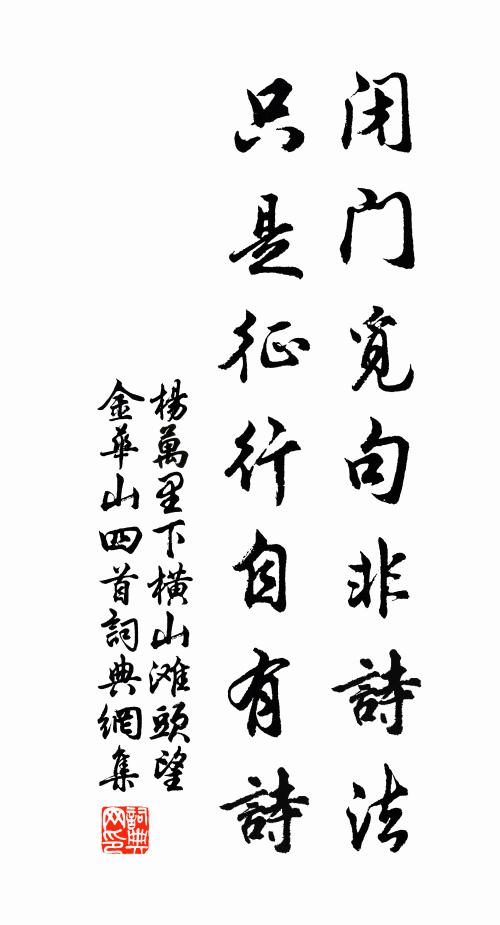 闭门觅句非詩法
只是征行自有詩
楊萬里下横山滩頭望
金華山四首詞典網集
詞典
网印